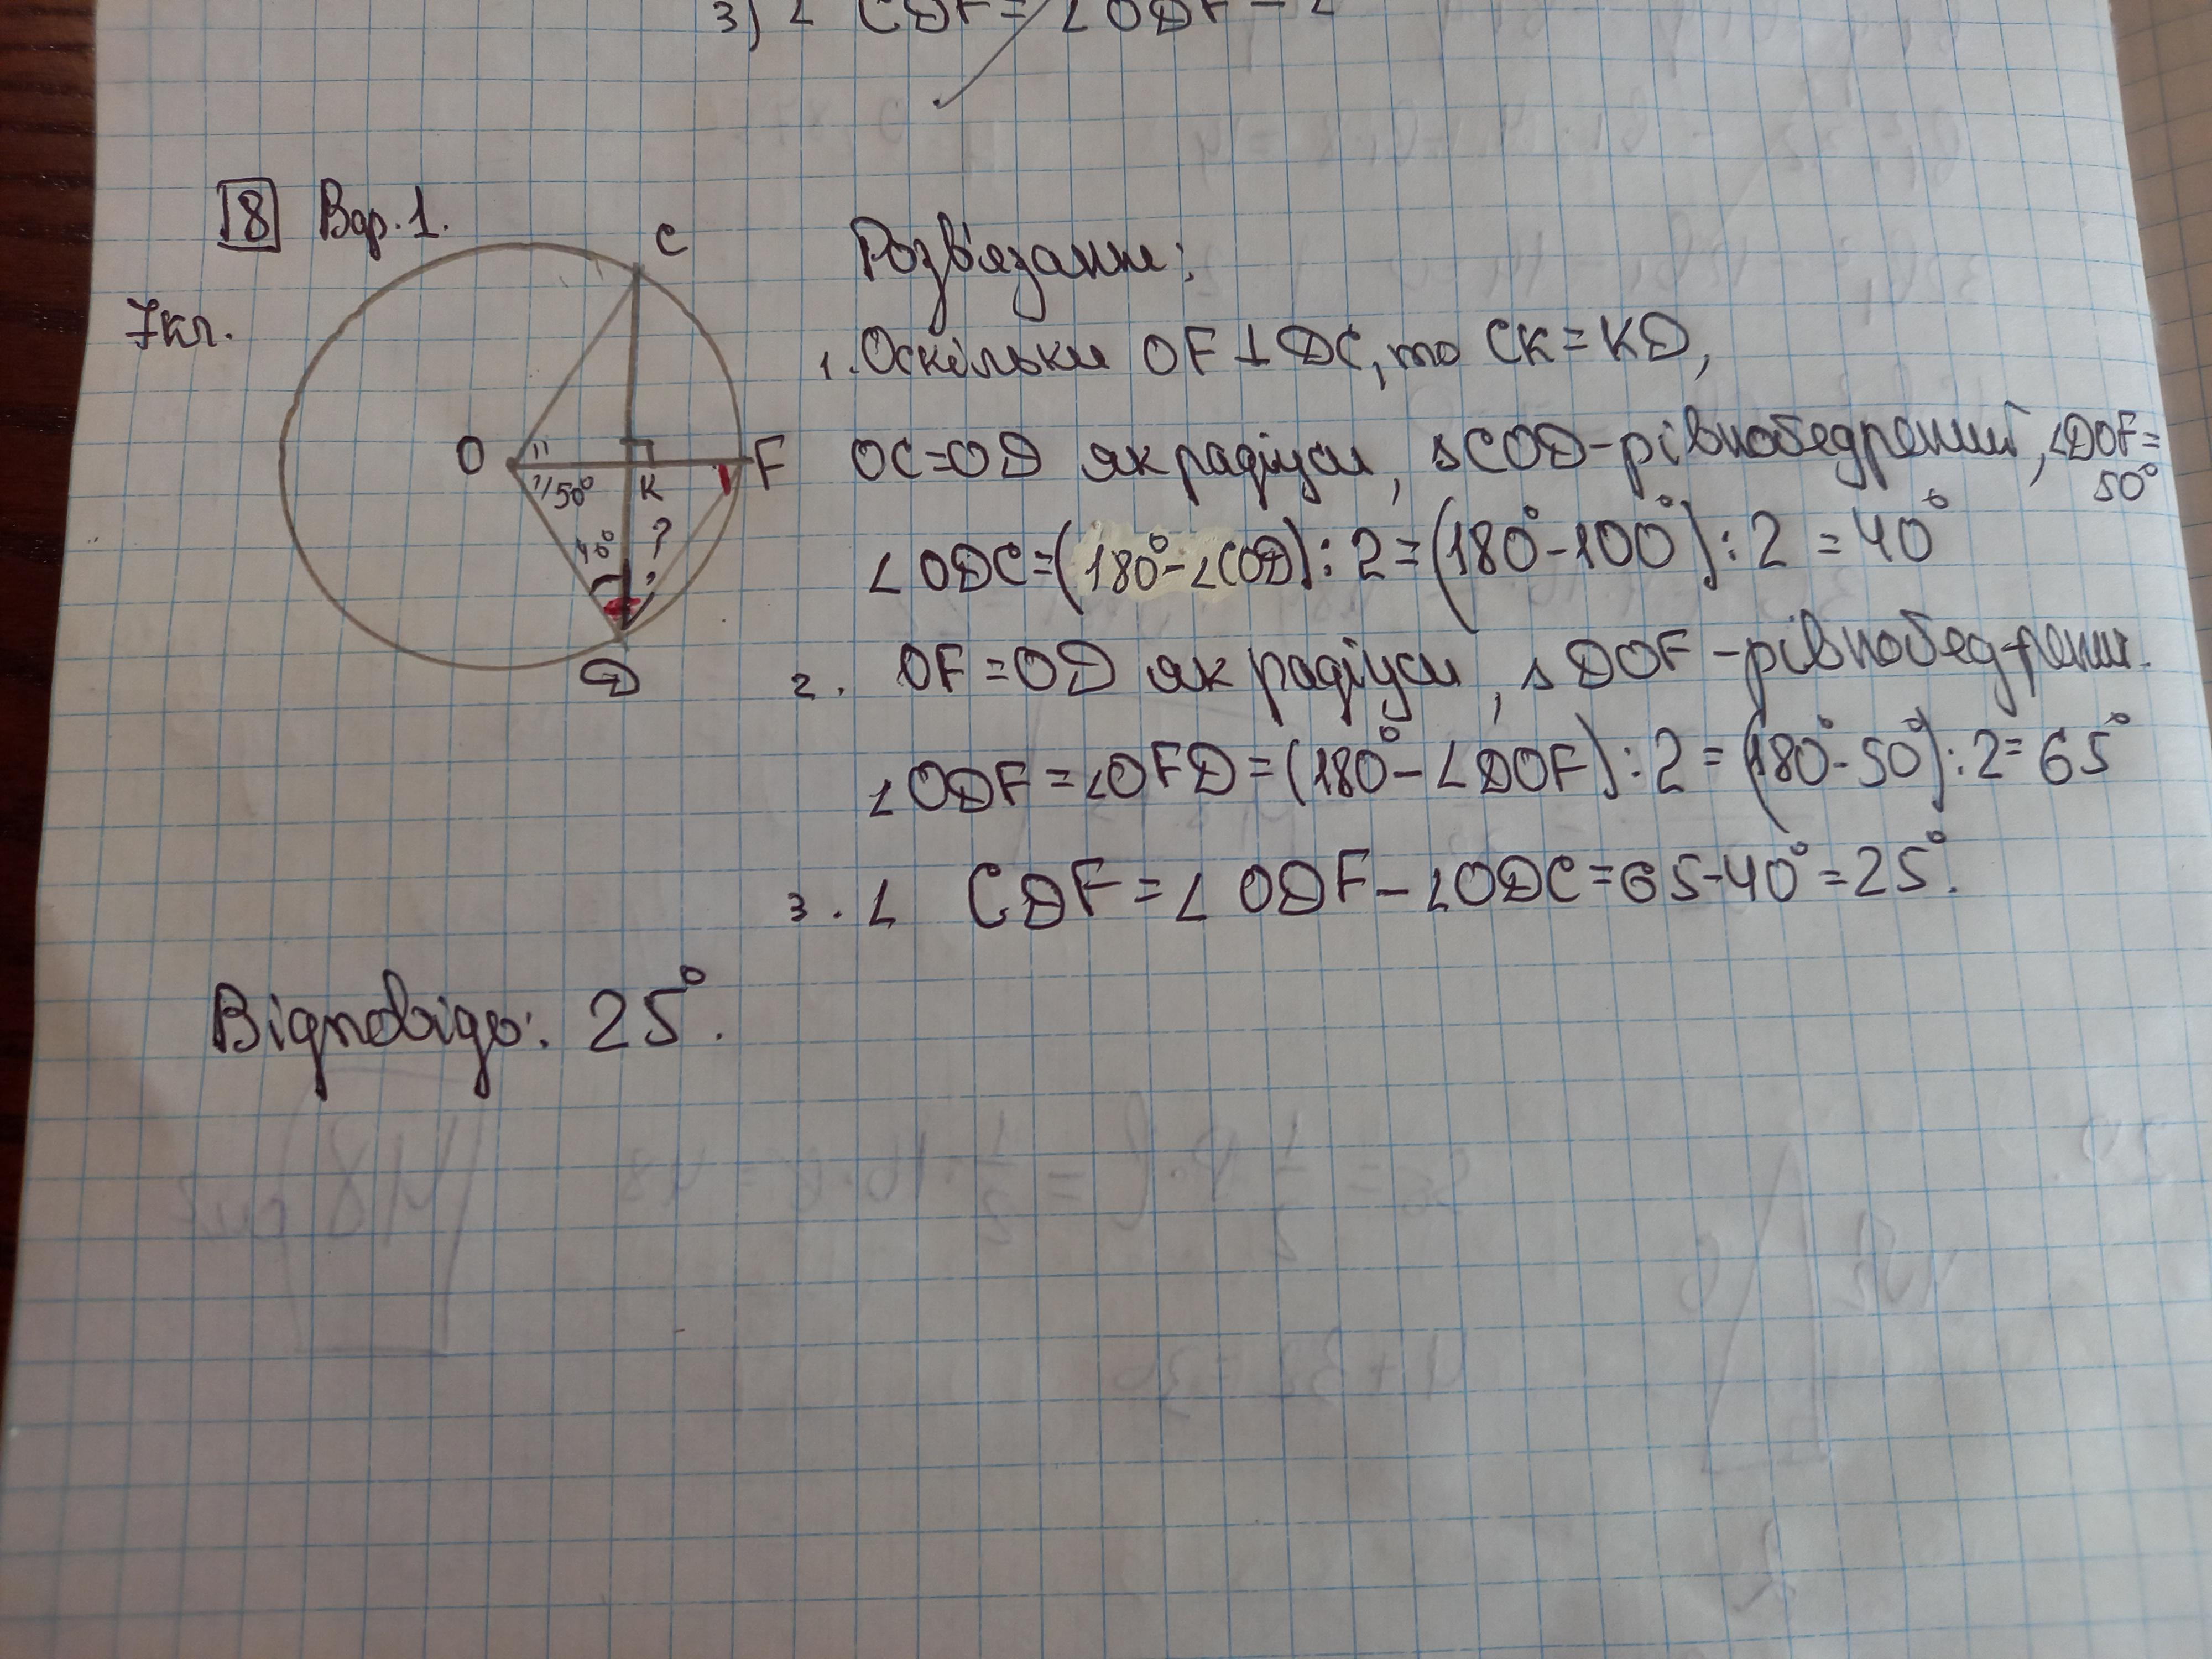 3) ∠ CDF = ∠ODF - ∠
8 Вар. 1.
7кл.
C
O
F
50°
K
40°
?
D
Розв'язання:
1. Оскільки OF ⊥ DC, то CK = KD,
OC = OD як радіуси, △COD - рівнобедрений, ∠DOF =
50°
∠ODC = (180° - ∠COD) : 2 = (180° - 100°) : 2 = 40°
2. OF = OD як радіуси, △DOF - рівнобедрени.
∠ODF = ∠OFD = (180° - ∠DOF) : 2 = (180° - 50°) : 2 = 65°
3. ∠ CDF = ∠ODF - ∠ODC = 65 - 40° = 25°.
Відповідь: 25°.